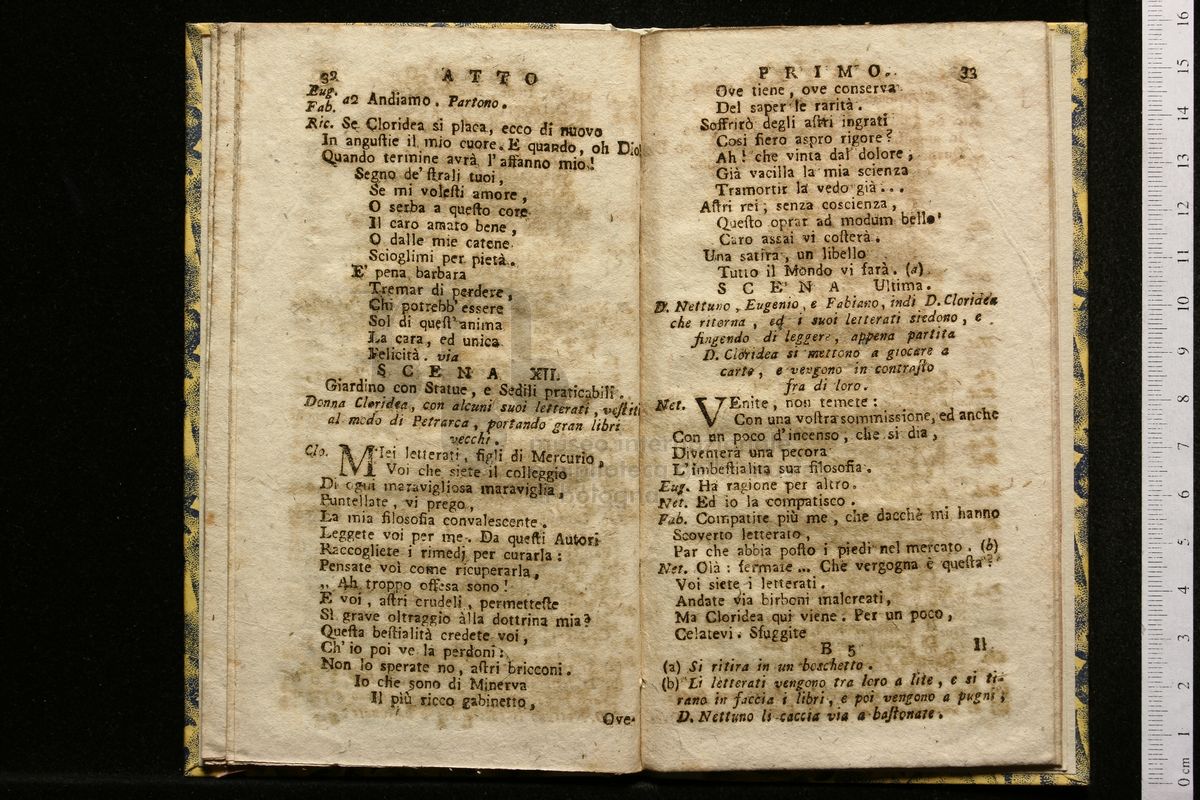 32 ATTO
Eug.
Fab. a2 Andiamo. Partono.
Ric. Se Cloridea si placa, ecco di nuovo
In anguſtie il mio cuore. E quando, oh Dio!
Quando termine avrà l'affanno mio!
Segno de' ſtrali tuoi,
Se mi voleſti amore,
O serba a queſto core
Il caro amato bene,
O dalle mie catene
Scioglimi per pietà.
E' pena barbara
Tremar di perdere,
Chi potrebb' essere
Sol di queſt' anima
La cara, ed unica
Felicità. via
SCENA XII.
Giardino con Statue, e Sedili praticabili.
Donna Cloridea, con alcuni suoi letterati, veſtiti
al modo di Petrarca, portando gran libri
vecchi.
Clo. MIei letterati, figli di Mercurio,
Voi che siete il colleggio
Di ogni maravigliosa maraviglia,
Puntellate, vi prego,
La mia filosofia convalescente.
Leggete voi per me. Da queſti Autori
Raccogliete i rimedj per curarla:
Pensate voi come ricuperarla,
„ Ah troppo offesa sono!
E voi, aſtri crudeli, permetteſte
Sì grave oltraggio alla dottrina mia?
Queſta beſtialità credete voi,
Ch' io poi ve la perdoni:
Non lo sperate no, aſtri bricconi.
Io che sono di Minerva
Il più ricco gabinetto,
Ove
PRIMO. 33
Ove tiene, ove conserva
Del saper le rarità.
Soffrirò degli aſtri ingrati
Così fiero aspro rigore?
Ah! che vinta dal dolore,
Già vacilla la mia scienza
Tramortir la vedo già...
Aſtri rei, senza coscienza,
Queſto oprar ad modum bello
Caro assai vi coſterà.
Una satira, un libello
Tutto il Mondo vi farà. (a)
SCENA Ultima.
D. Nettuno, Eugenio, e Fabiano, indi D. Cloridea
che ritorna, ed i suoi letterati siedono, e
fingendo di leggere, appena partita
D. Cloridea si mettono a giocare a
carte, e vengono in contraſto
fra di loro.
Net. VEnite, non temete:
Con una voſtra sommissione, ed anche
Con un poco d'incenso, che si dia,
Diventerà una pecora
L'imbeſtialita sua filosofia.
Eug. Ha ragione per altro.
Net. Ed io la compatisco.
Fab. Compatite più me, che dacchè mi hanno
Scoverto letterato,
Par che abbia poſto i piedi nel mercato. (b)
Net. Olà: fermate ... Che vergogna è queſta?
Voi siete i letterati.
Andate via birboni malcreati,
Ma Cloridea qui viene. Per un poco,
Celatevi. Sfuggite
B 5 Il
(a) Si ritira in un boschetto.
(b) Li letterati vengono tra loro a lite, e si ti-
rano in faccia i libri, e poi vengono a pugni,
D. Nettuno li caccia via a baſtonate.